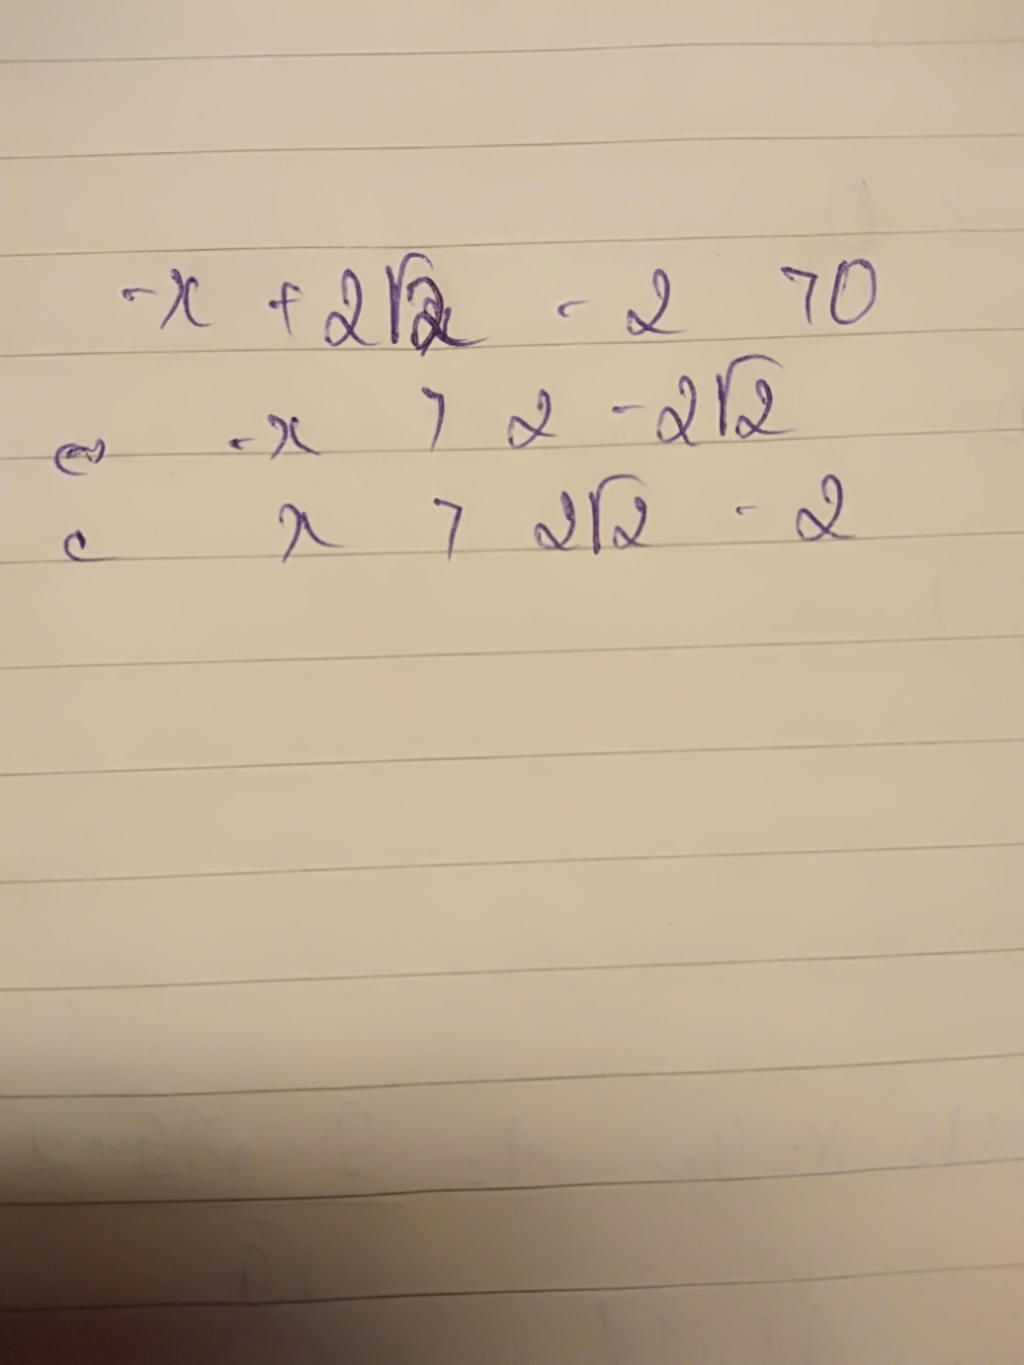 -x + 2√2 - 2 > 0
⇔ -x > 2 - 2√2
x > 2√2 - 2